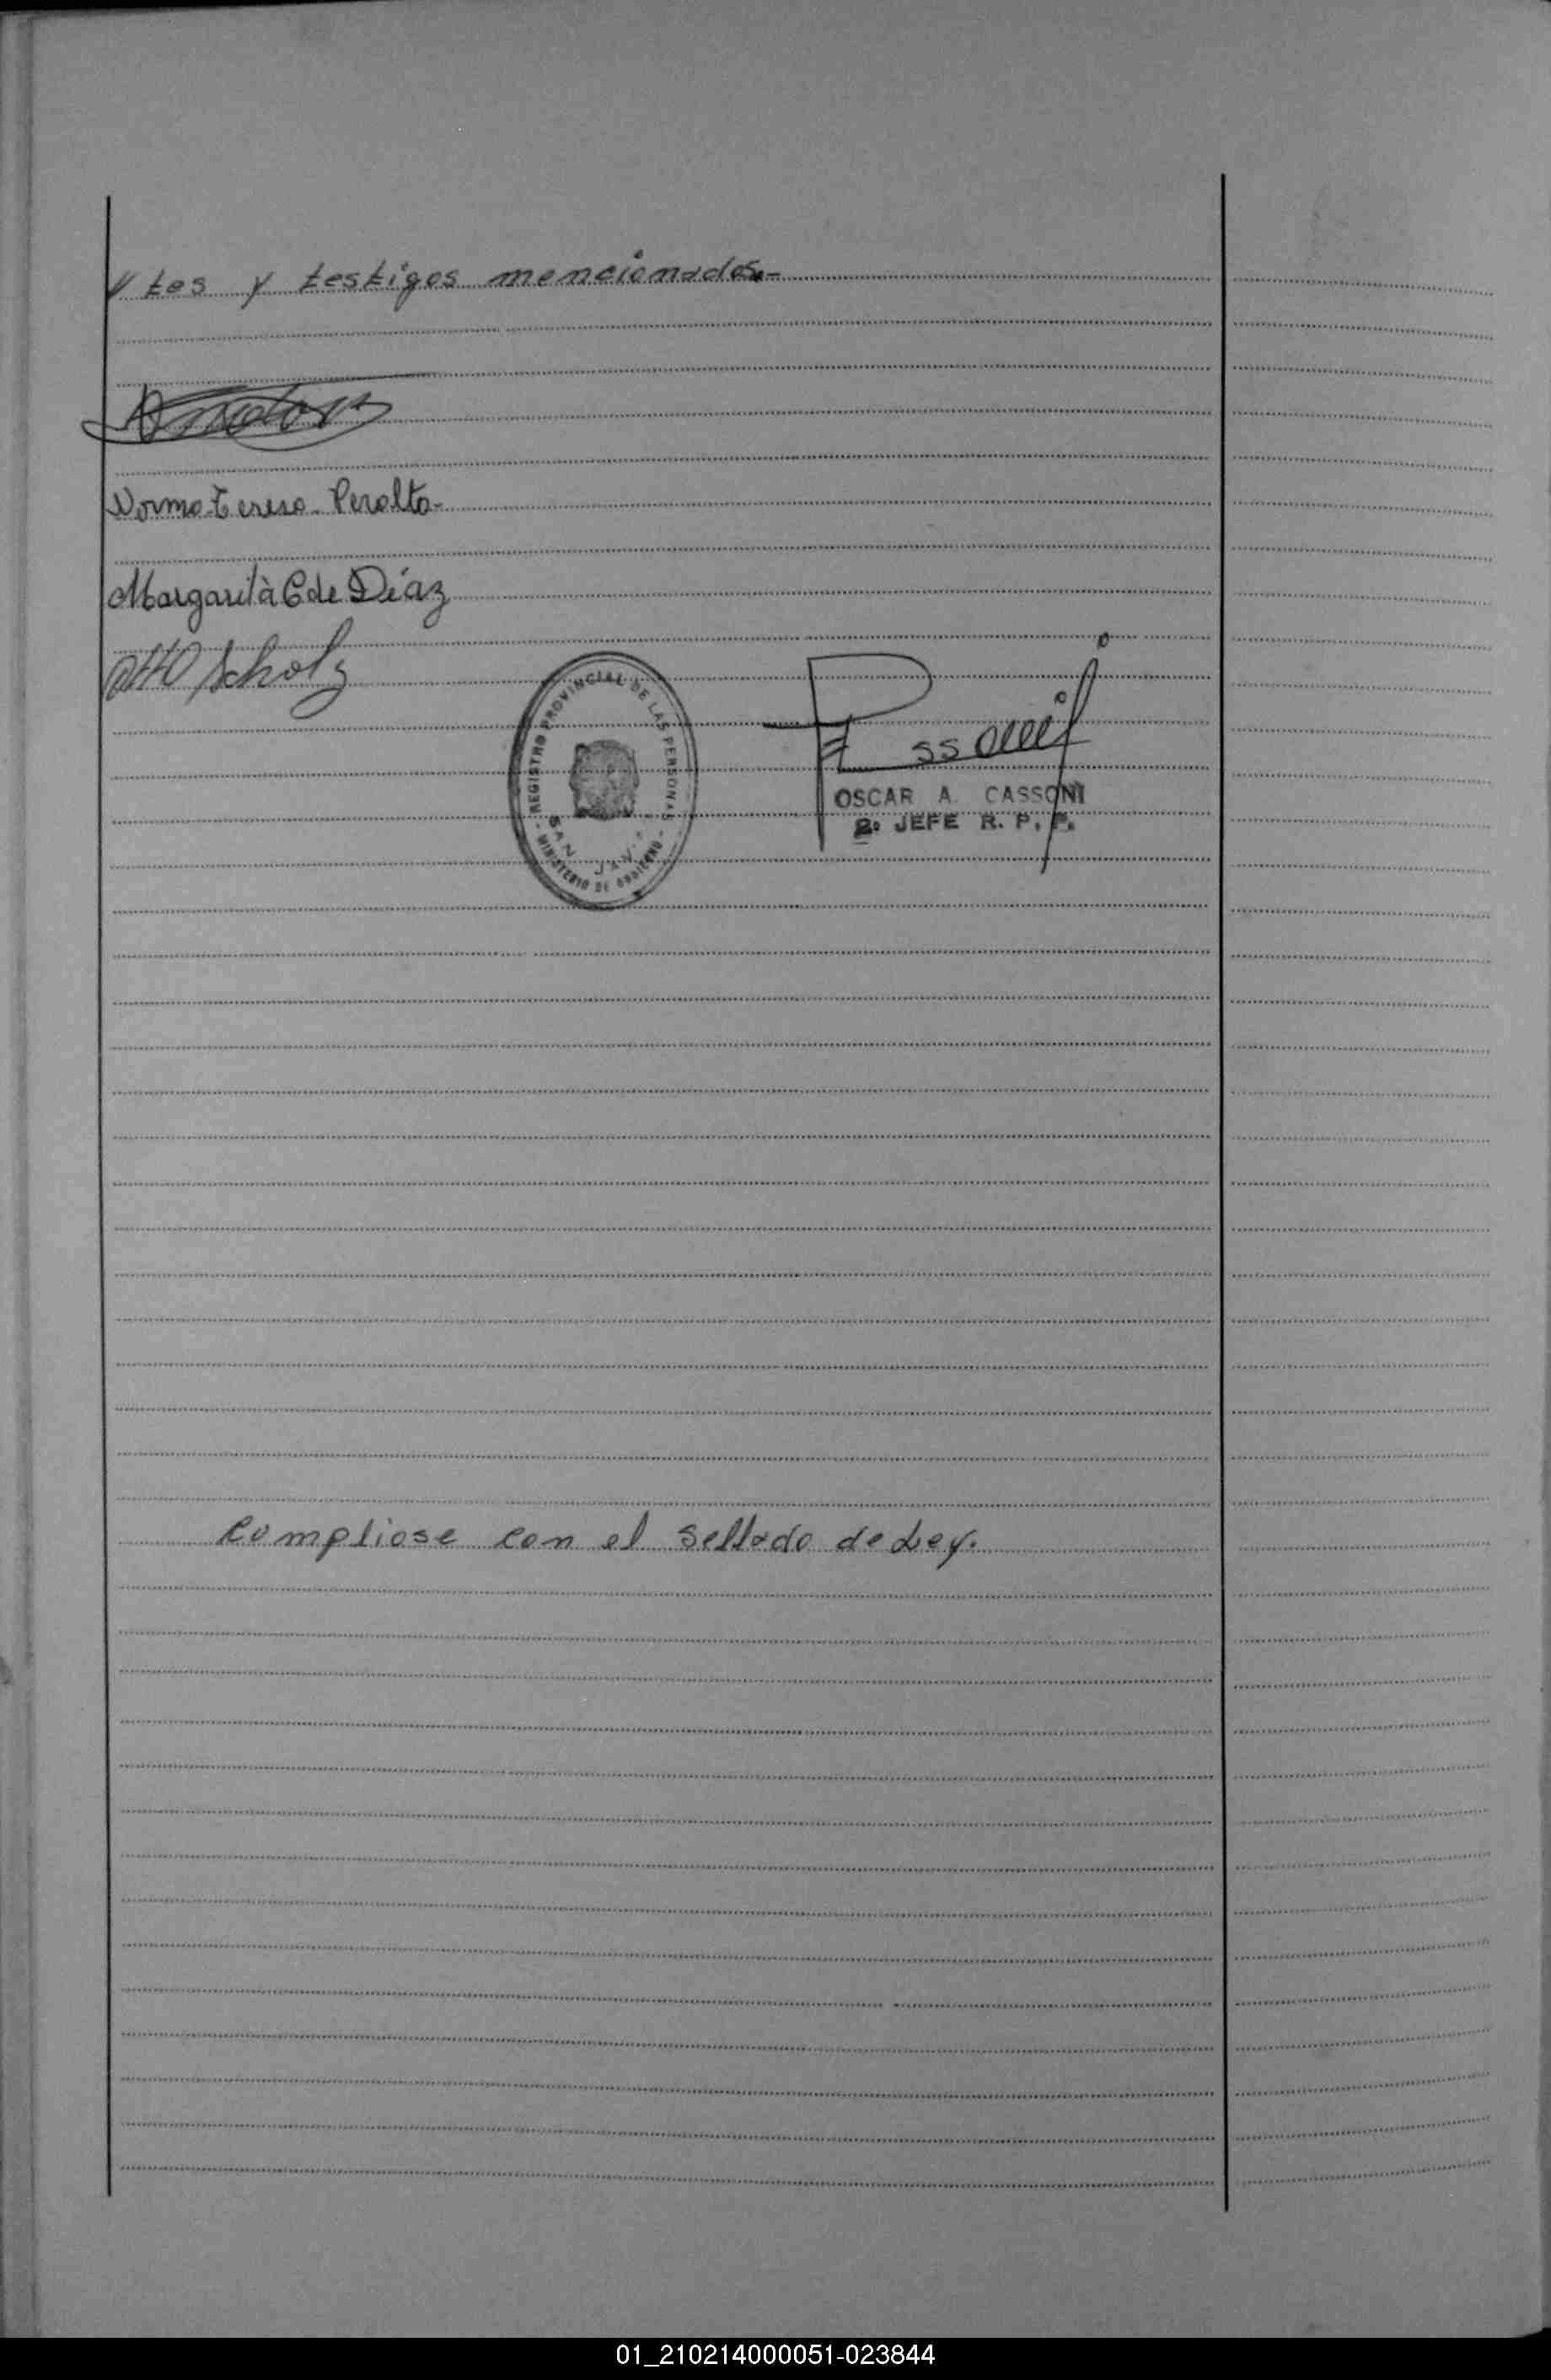 tes y testigos mencionados.-
Norma Teresa Peralta-
Margarita C de Díaz
Otto Scholz
- REGISTRO PROVINCIAL DE LAS PERSONAS -
SAN JUAN
MINISTERIO DE GOBIERNO
OSCAR A. CASSONI
2º JEFE R. P. P.
Cumpliose con el sellado de Ley.
01_210214000051-023844